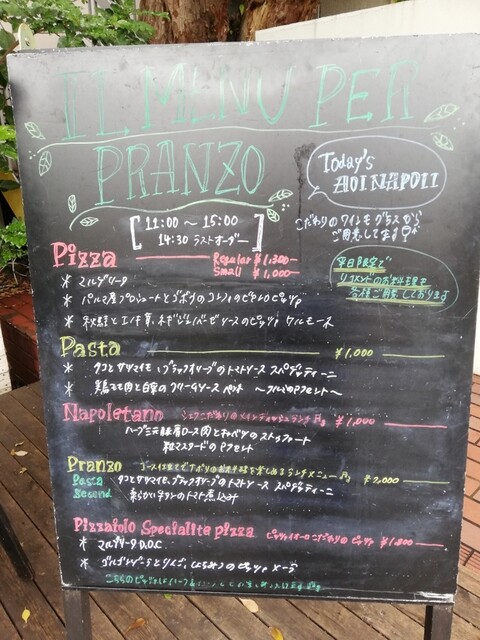 IL MENU PER
PRANZO
Today's
AOI NAPOLI
[ 11:00 〜 15:00
14:30 ラストオーダー ]
こだわりのワインもグラスから
ご用意してます
平日限定で
各種ご用意しております
Pizza
Regular ¥1,300-
Small ¥1,000-
* マルゲリータ
* パルマ産プロシュートとゴボウの
* 秋鮭と
Pasta ¥1,000
* タコとサツマイモ、ブラックオリーブのトマトソース スパゲッティーニ
* 鶏モモ肉と白菜のクリームソース ペンネ
Napoletano シェフこだわりのメインディッシュランチ ¥1,000
ハーブ三元豚肩ロース肉とキャベツのストゥファート
粒マスタードのアクセント
Pranzo ¥2,000
Pasta タコとサツマイモ、ブラックオリーブのトマトソース スパゲッティーニ
Second 柔らか のトマト煮込み
Pizzaiolo Specialite pizza ピッツァイオーロこだわりのピッツァ ¥1,800
* マルゲリータ D.O.C
* ゴルゴンゾーラとりんご、はちみつのピッツァ